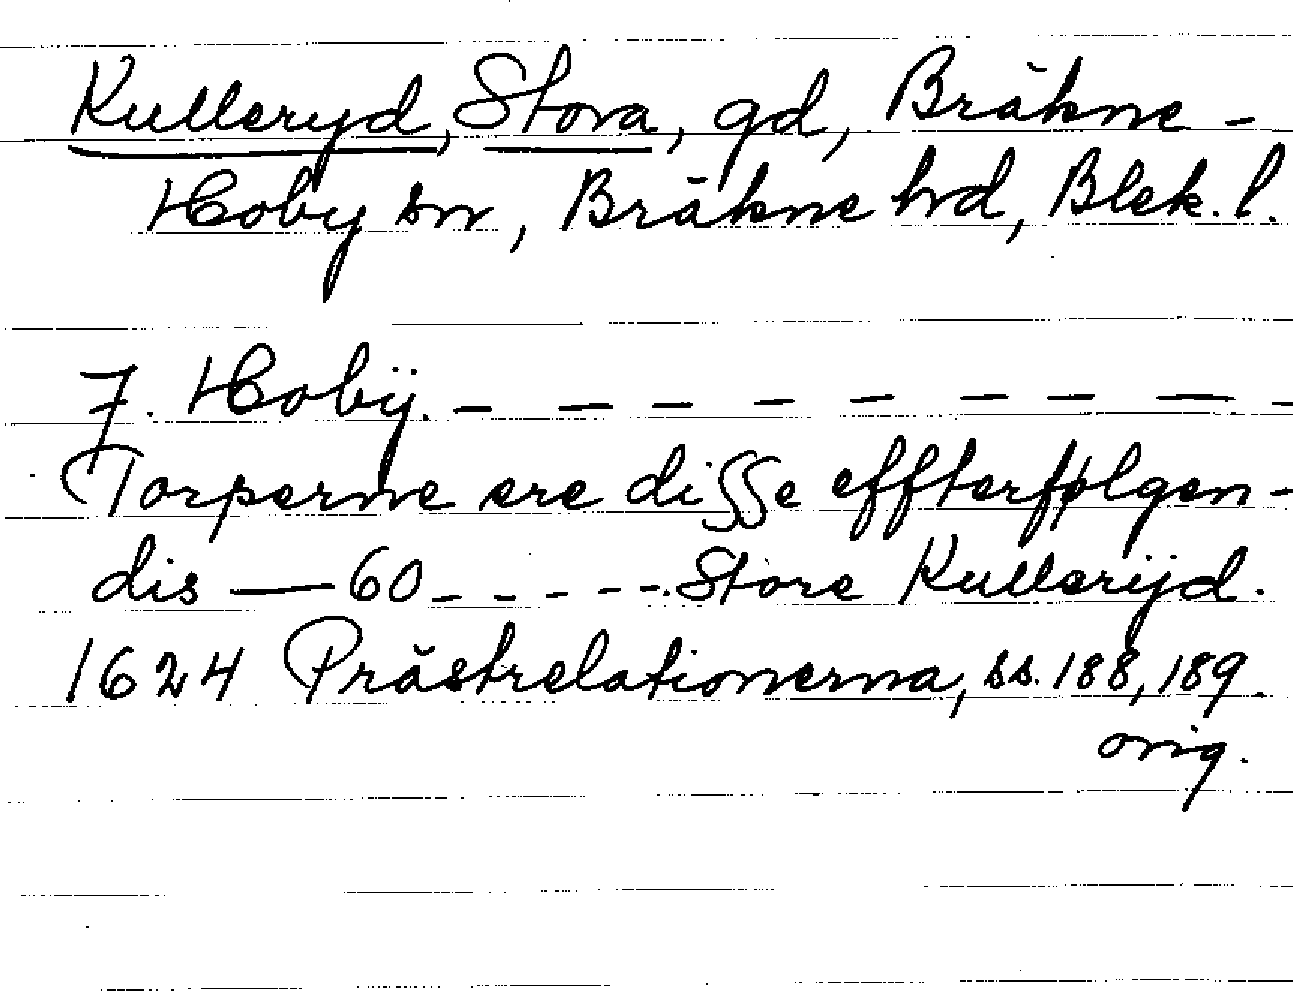 Kulleryd, Stora, gd, Bräkne-
Hoby sn, Bräkne hd, Blek. l.
7. Hobÿ. – – – – – – – – –
Torperne ere disse effterfølgen-
dis — 60 – – – – –. Store Kullerÿd.
1624 Prästrelationerna, ss. 188, 189.
orig.